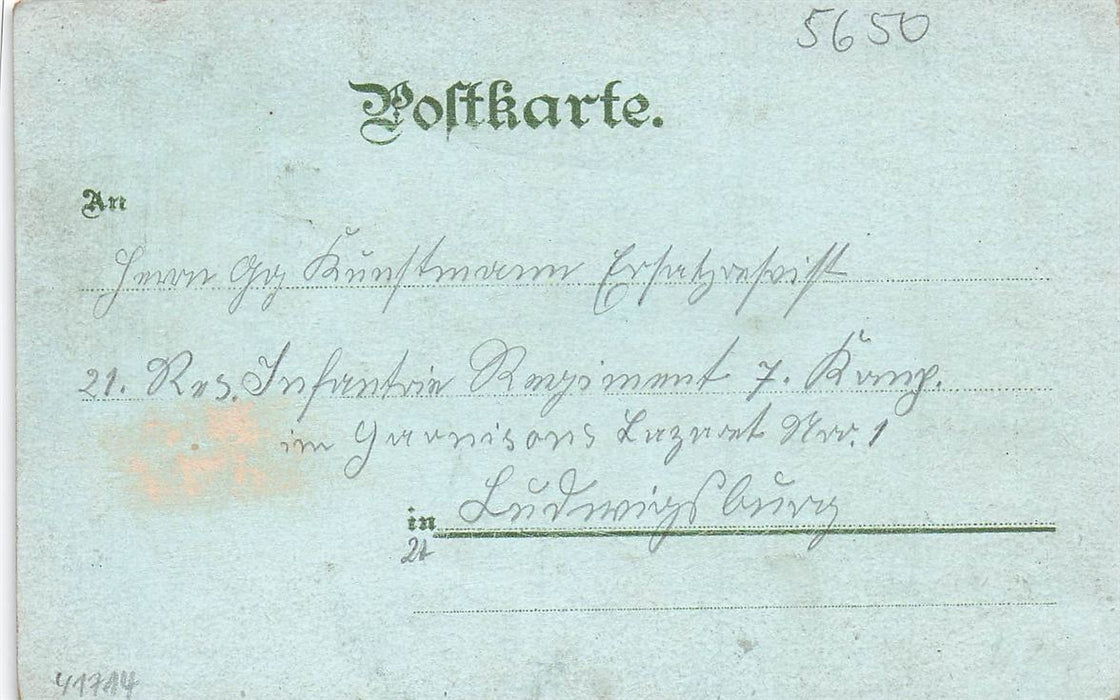 5650
Postkarte.
An
Herrn Gg Kunstmann Ersatzreservist
21. Res. Infantrie Regiment 7. Komp.
im Garnisons Lazaret Nro. 1
in Ludwigsburg
41714